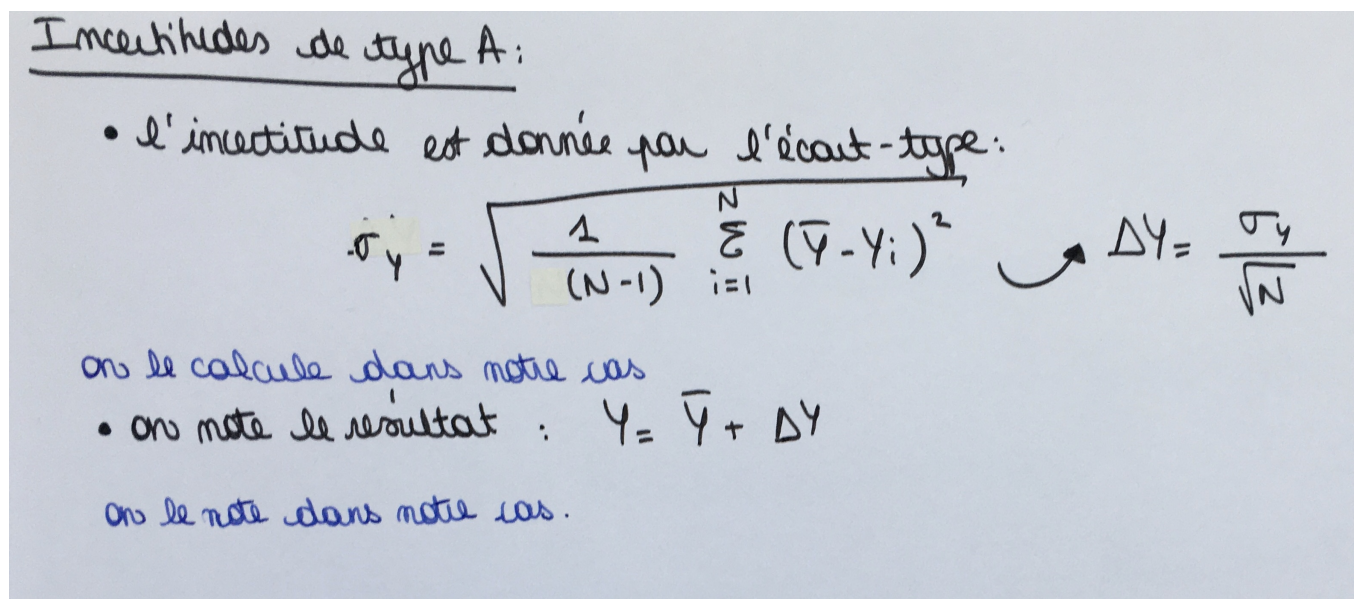 Incertitudes de type A :
• l'incertitude est donnée par l'écart-type :
σ_y = √( 1/(N-1) Σ_{i=1}^{N} (Ȳ - Yi)² ) → ΔY = σ_y/√N
on le calcule dans notre cas
• on note le résultat : Y = Ȳ + ΔY
on le note dans notre cas.